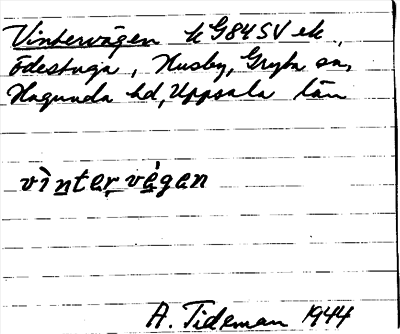 Vintervägen k G84SV ek.,
Ödestuga, Husby, Gryta sn,
Hagunda hd, Uppsala län
vìntervégen
A. Tideman 1944